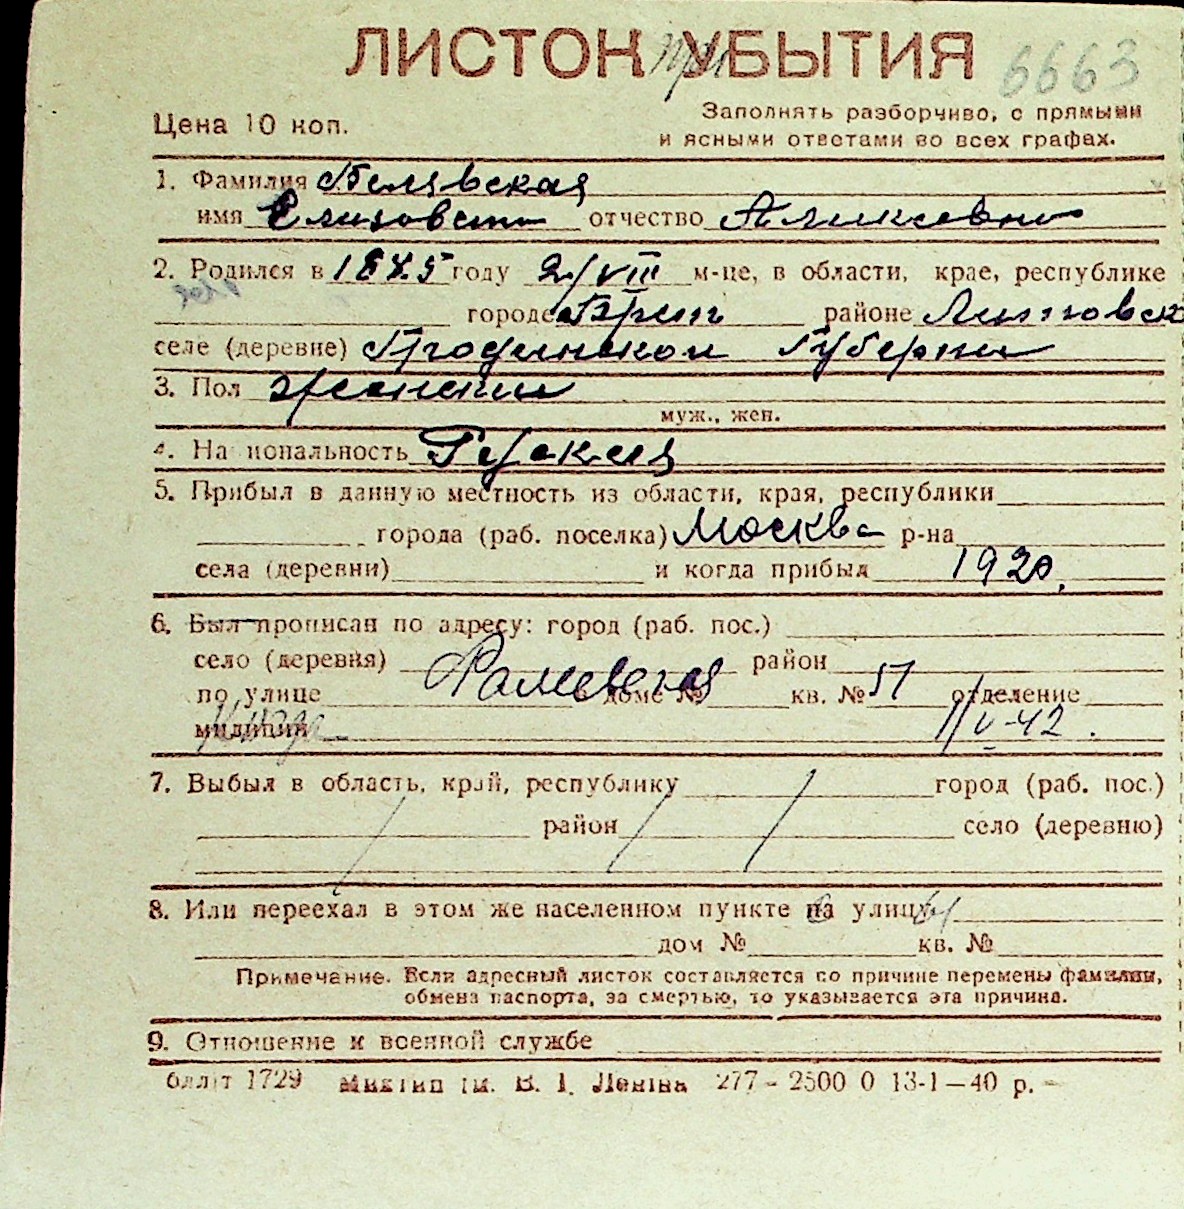 ЛИСТОК при УБЫТИЯ 6663
Цена 10 коп.
Заполнять разборчиво, с прямыми
и ясными ответами во всех графах.
1. Фамилия Белявская
имя Елизовета отчество Аликсевна
2. Родился в 1875 году 2/VIII м-це, в области, крае, республике
городе районе Литовск
селе (деревне) Губерни
3. Пол женский
муж., жен.
4. Национальность
5. Прибыл в данную местность из области, края, республики
города (раб. поселка) Москва р-на
села (деревни) и когда прибыл 1920.
6. Был прописан по адресу: город (раб. пос.)
село (деревня) район
по улице в доме № кв. № 51 отделение
милиции 11/V-42.
7. Выбыл в область, край, республику город (раб. пос.)
район село (деревню)
8. Или переехал в этом же населенном пункте на улицу
дом № кв. №
Примечание. Если адресный листок составляется по причине перемены фамилии,
обмена паспорта, за смертью, то указывается эта причина.
9. Отношение к военной службе
1729 им. В. І. Леніна 277 - 2500 0 13-1-40 р.